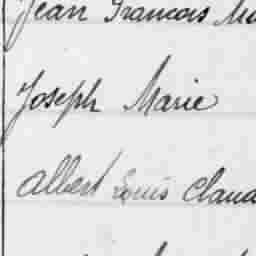 Jean François
Joseph Marie
Albert Louis Claud